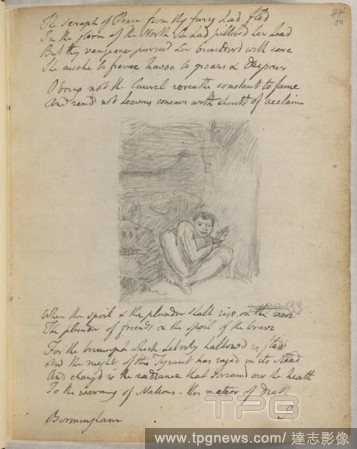 The Seraph of Peace from thy fury had fled
In the storm of the North had pillow'd her head
But thy vengeance pursued her
She awoke to
O bring not the laurel wreath constant to fame
And rend not Heavens concave with shouts of acclaim
When the spoil & the plunder shall rise on the
The plunder of friends & the spoil of the brave
For the which Liberty hallowed is fled
And the might of the Tyrant has raged in its stead
And changed is the radiance that streamed oer the heath
To the warning of Nations the meteor of Death
Birmingham
TPG
www.tpgnews.com/達志影像